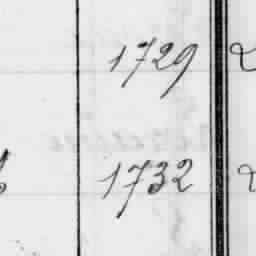 1729
1732